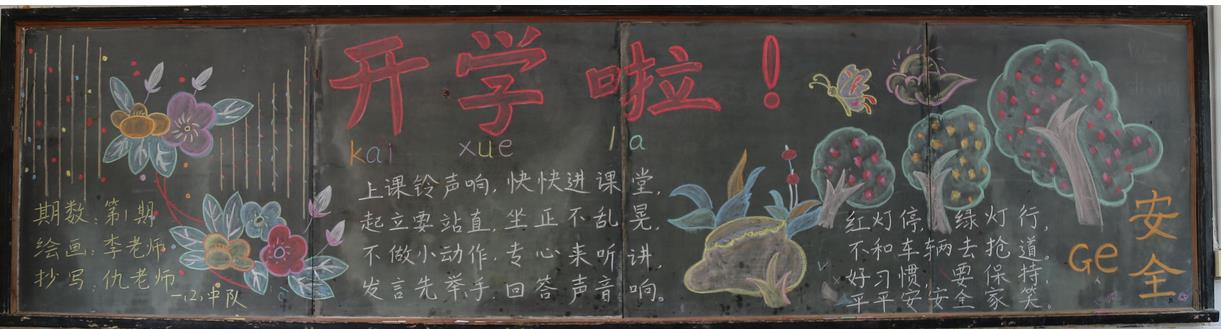 开学啦！
kai xue la
期数：第1期
绘画：李老师
抄写：仇老师
一，2，中队
上课铃声响，快快进课堂，
起立要站直，坐正不乱晃，
不做小动作，专心来听讲，
发言先举手，回答声音响。
红灯停，绿灯行，
不和车辆去抢道。
好习惯，要保持，
平平安安全家笑。
安全
Ge